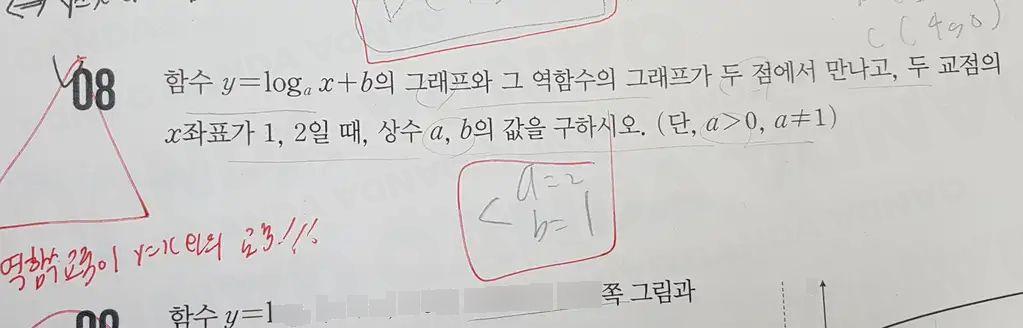 C (4,0)
08 함수 y=logₐ x+b의 그래프와 그 역함수의 그래프가 두 점에서 만나고, 두 교점의
x좌표가 1, 2일 때, 상수 a, b의 값을 구하시오. (단, a>0, a≠1)
a=2
b=1
역함수 y=x
함수 y=1 쪽 그림과